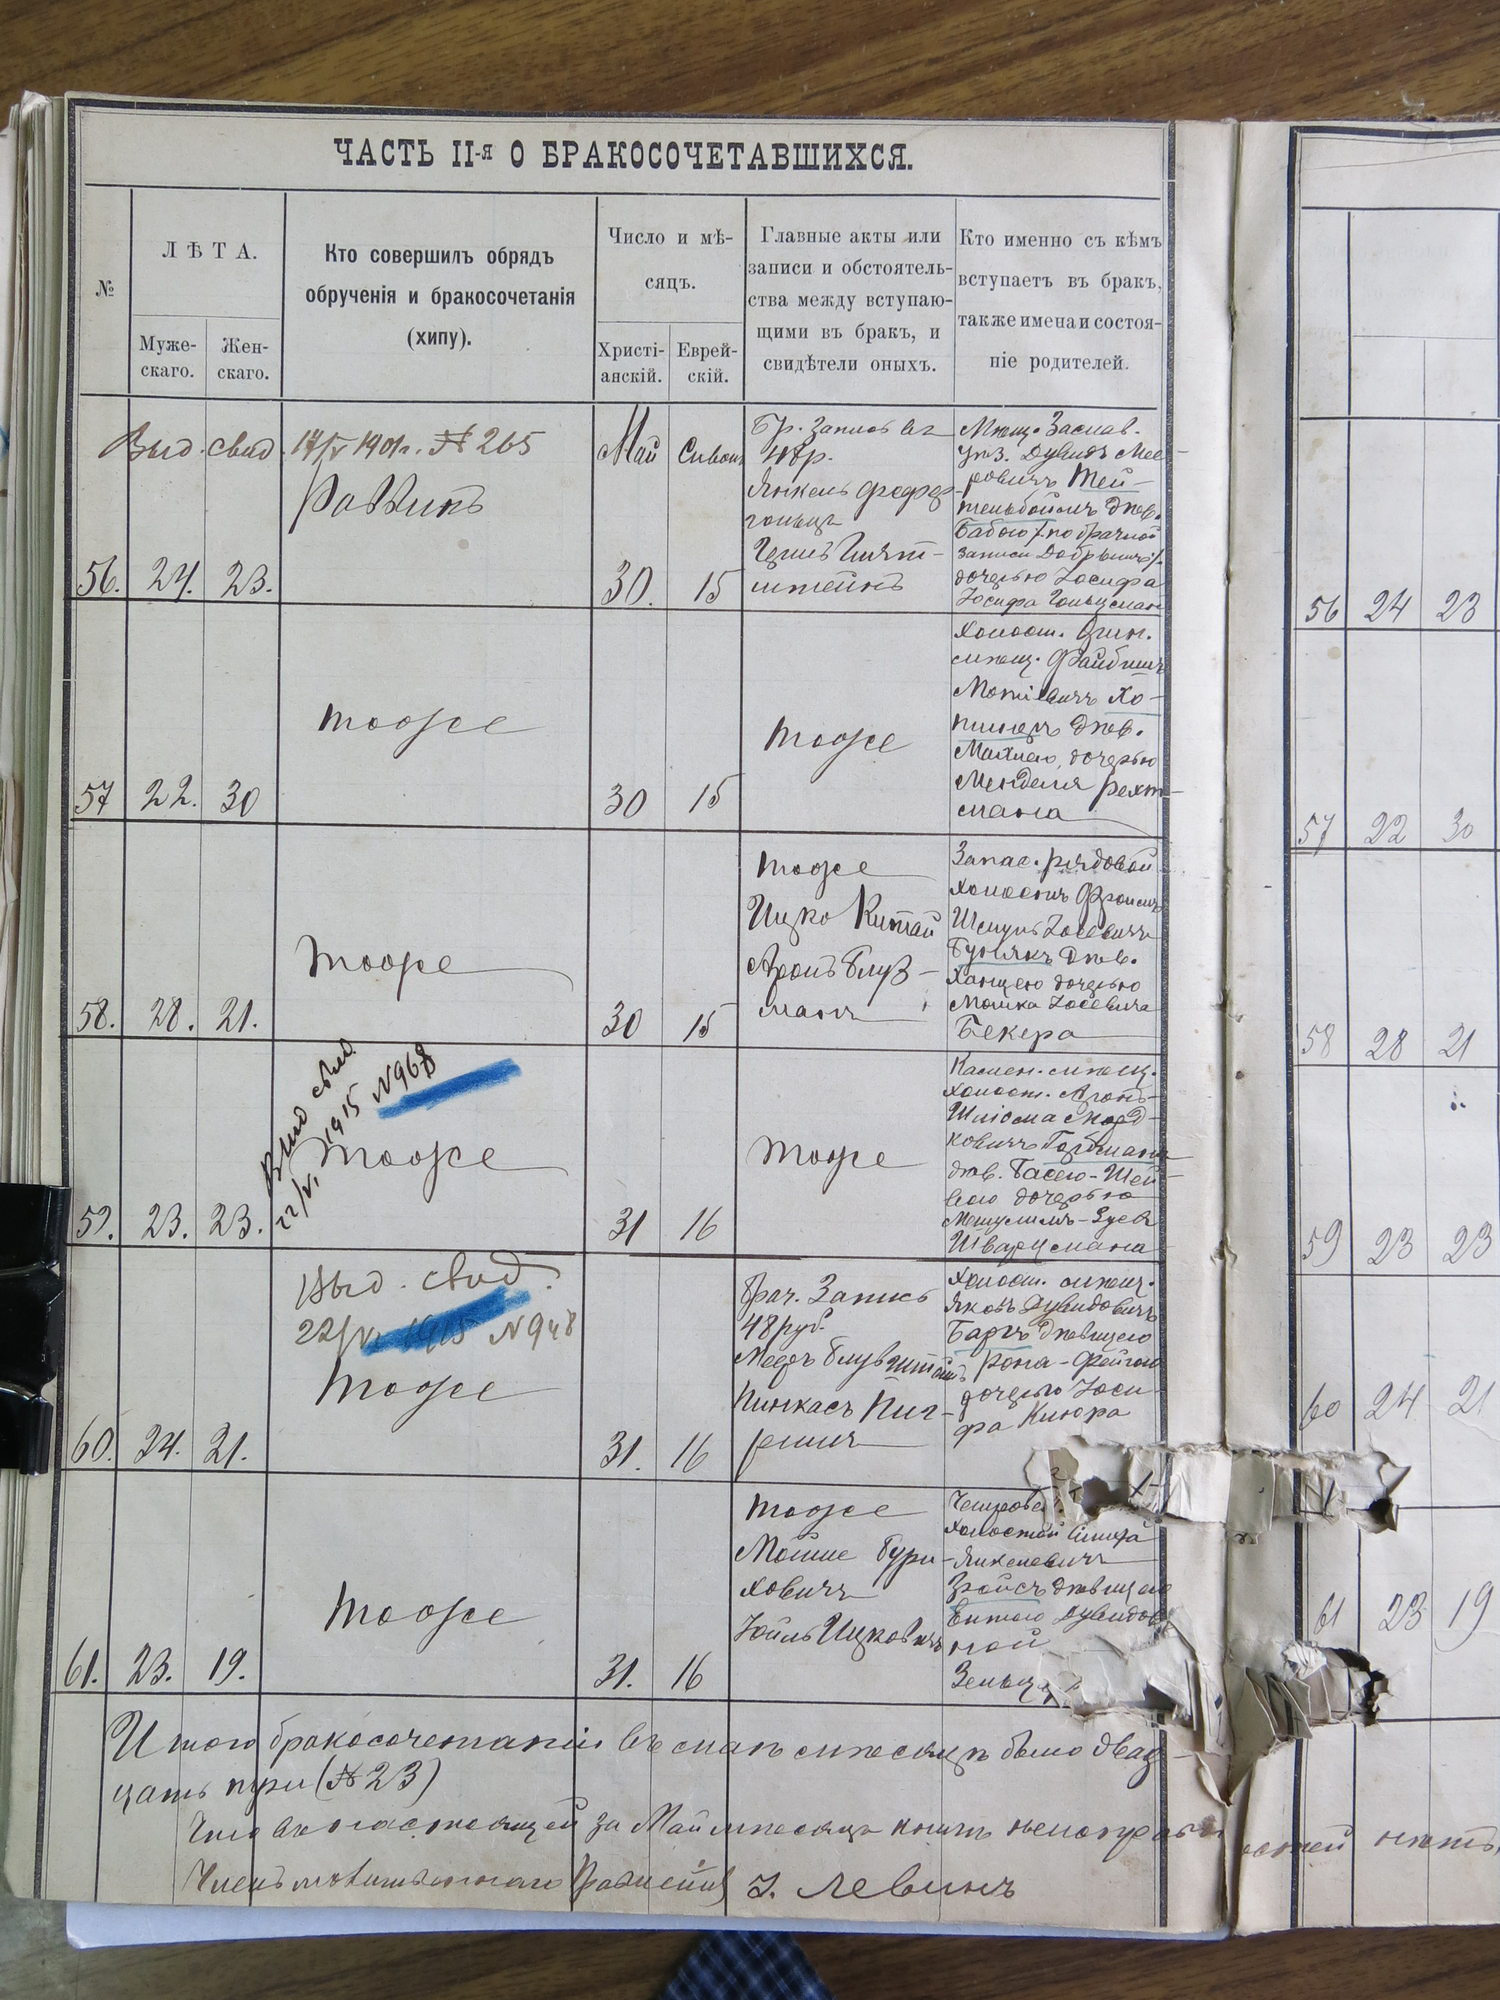 ЧАСТЬ II-я О БРАКОСОЧЕТАВШИХСЯ.
№
ЛѢТА.
Муже-
скаго.
Жен-
скаго.
Кто совершилъ обрядъ
обрученія и бракосочетанія
(хипу).
Число и мѣ-
сяцъ.
Христі-
анскій.
Еврей-
скій.
Главные акты или
записи и обстоятель-
ства между вступаю-
щими въ бракъ, и
свидѣтели оныхъ.
Кто именно съ кѣмъ
вступаетъ въ бракъ,
также имена и состоя-
ніе родителей.
56. 24. 23.
Выд. свид. 17/V 1901г. № 265
Раввинъ
Май
30.
Сиванъ
15
Бр. Запись въ
48р.
Янкель
штейнъ
Мѣщ. Заслав.
уѣз. Дувидъ Мее-
ровичъ Тей-
тельбоймъ дѣв.
Бабою /по брачной
записи Добрышъ/
дочерью Іосифа
Іосифа Гольцман
57 22. 30
тоже
30 15
тоже
Холост.
мѣщ. Файбишъ
Мотіевичъ Хо-
дѣв.
Малкою, дочерью
Менделя Рехт-
мана
58. 28. 21.
тоже
30 15
тоже
Ицко Китай
Аронъ Глуз-
манъ
Запас. рядовой
холостъ Фроимъ
Шмуль Іосевичъ
Бунякъ дѣв.
Ханцею дочерью
Мошка Іосевича
Бекера
59. 23. 23.
Выд свид.
22/V. 1915 N968
тоже
31 16
тоже
Камен. мѣщ.
холост. Аронъ-
Шліома Морд-
ковичъ
дѣв. Басею-Шей-
вою дочерью
Мешулимъ-Зуся
Шварцмана
60. 24. 21.
Выд. свид.
22/VI 1915 N948
тоже
31. 16
Брач. Запись
48 руб.
Мееръ Блувштейнъ
Пинкасъ
Холост. мѣщ.
Яковъ Дувидовичъ
Баргъ дѣвицею
Рона-Фейгою
дочерью Іоси-
фа Кнюра
61. 23. 19.
тоже
31. 16
тоже
Мошие Бури-
ховичъ
Іойль Ицковичъ
холостой
Янкелевичъ
Зройсъ дѣвицею
Ентою Дувидов
ной
Зельц
Итого бракосочетаній въ маѣ мѣсяцѣ было двад-
цать три (№ 23)
Что въ настоящей за Май мѣсяцъ книгѣ неисправностей нѣтъ,
Членъ молитвеннаго Правленія І. Левинъ
56 24 23
57 22 30
58 28 21
59 23 23
60 24 21
61 23 19